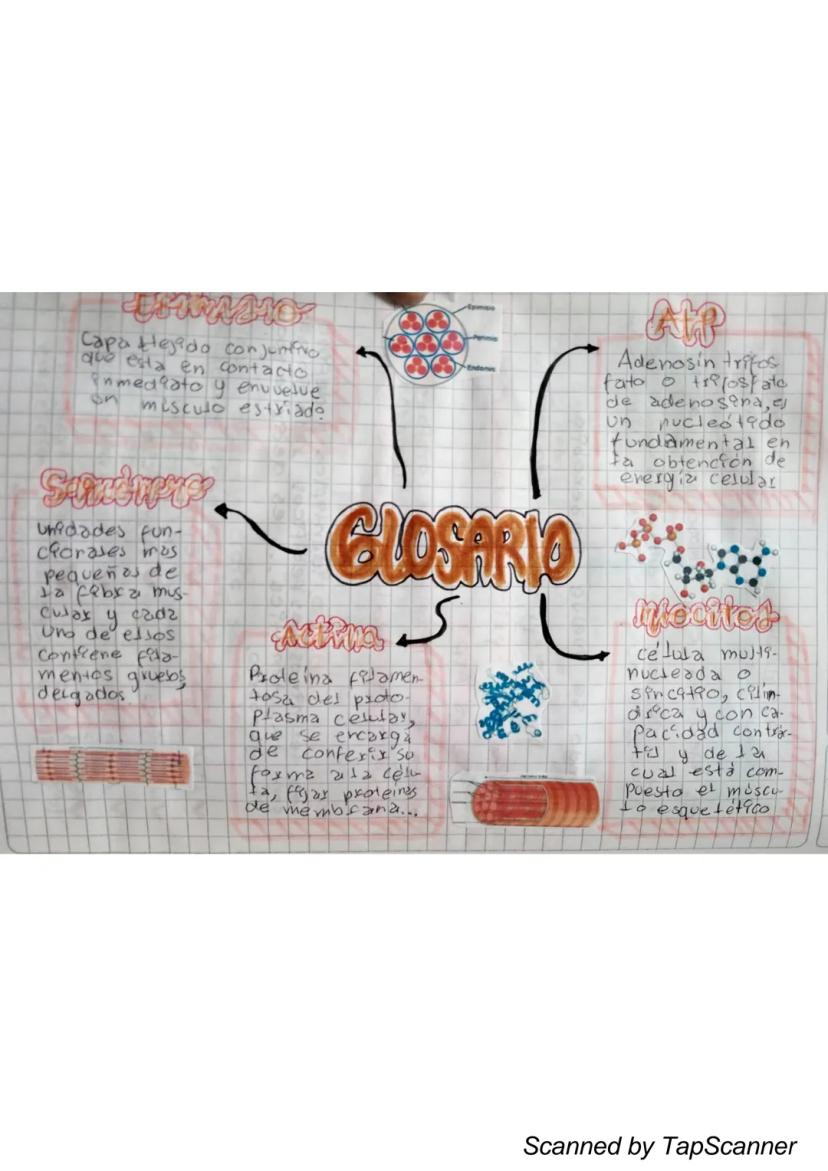 Epimisio
Capa tejido conjuntivo
que está en contacto
inmediato y envuelve
un músculo estriado
Epimisio
Perimisio
Endomisio
ATP
Adenosín trifos
fato o trifosfato
de adenosina, es
un nucleótido
fundamental en
la obtención de
energía celular
Sarcómero
Unidades fun-
cionales mas
pequeñas de
la fibra mus-
cular y cada
uno de ellos
contiene fila-
mentos gruesos,
delgados
GLOSARIO
Actina
Proteína filamen-
tosa del proto-
plasma celular,
que se encarga
de conferir su
forma a la célu-
la, fijar proteínas
de membrana...
Miocitos
célula multi-
nucleada o
sincitio, cilín-
drica y con ca-
pacidad contrác-
til y de la
cual está com-
puesto el múscu-
lo esquelético
Scanned by TapScanner